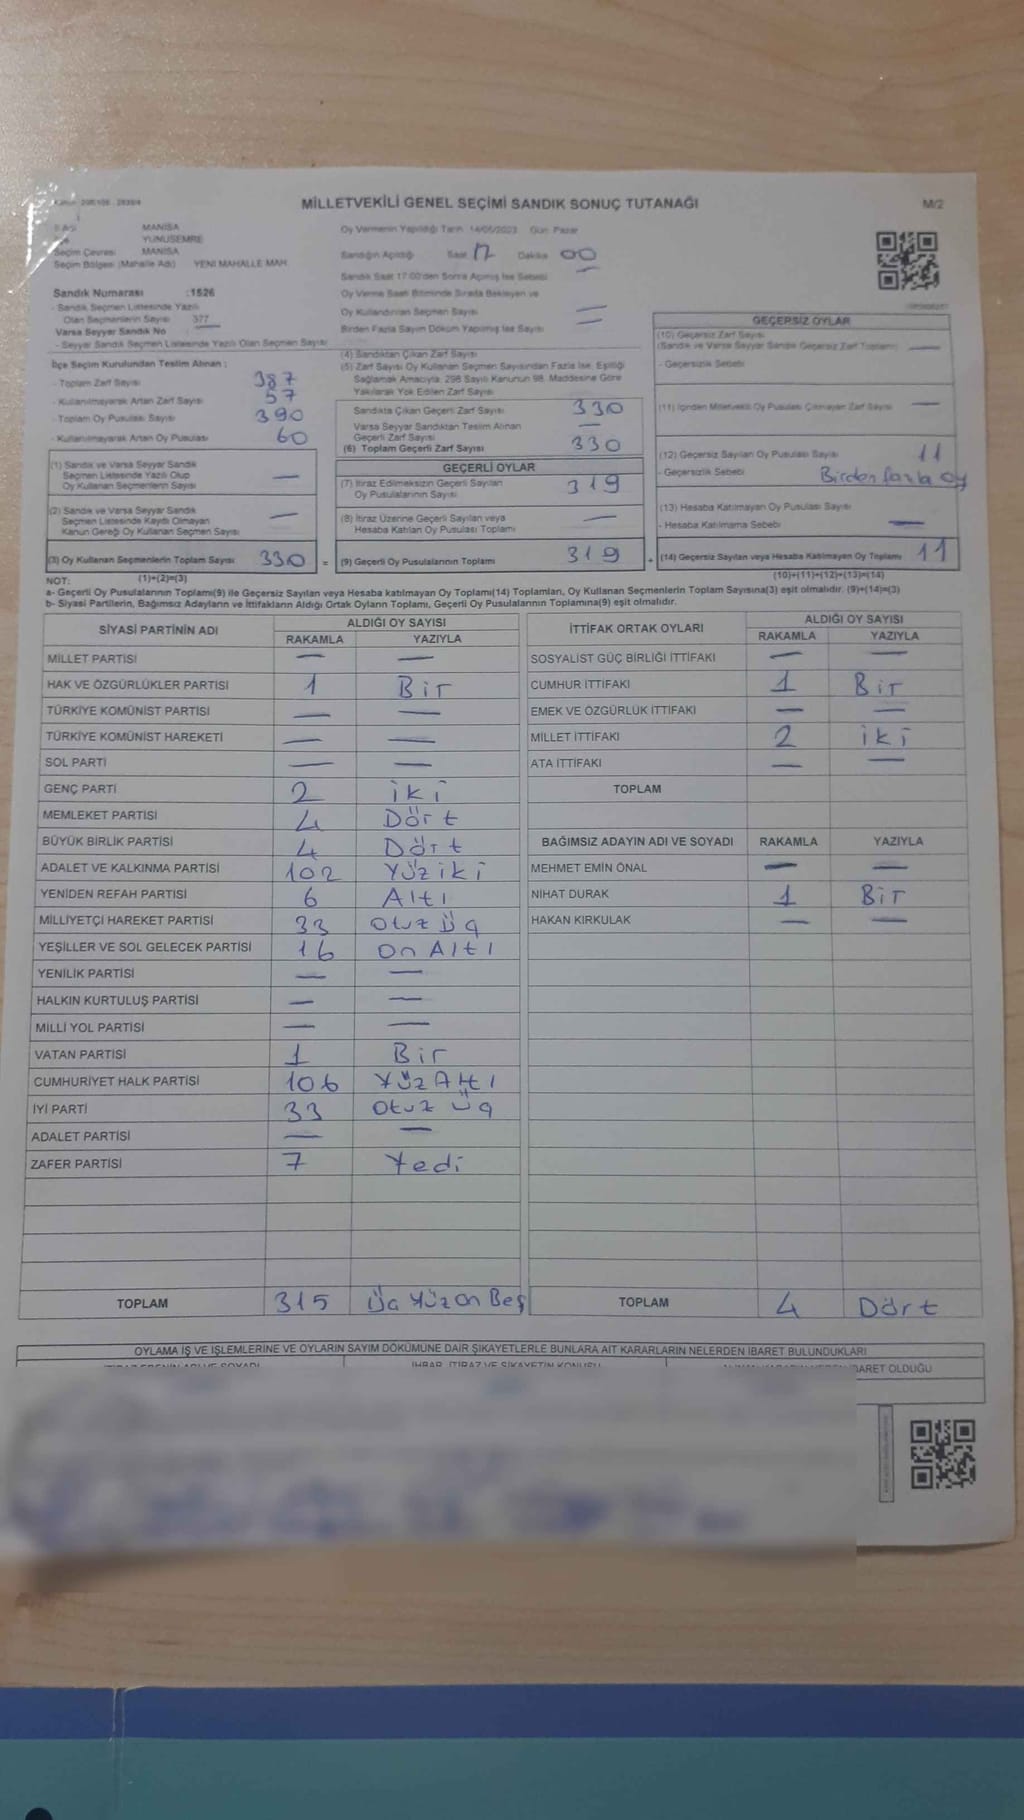 MİLLETVEKİLİ GENEL SEÇİMİ SANDIK SONUÇ TUTANAĞI
M/2
MANİSA
YUNUSEMRE
Seçim Çevresi MANİSA
Seçim Bölgesi (Mahalle Adı) YENİ MAHALLE MAH.
Sandık Numarası :1526
- Sandık Seçmen Listesinde Yazılı
Olan Seçmenlerin Sayısı 377
Varsa Seyyar Sandık No
- Seyyar Sandık Seçmen Listesinde Yazılı Olan Seçmen Sayısı
Oy Vermenin Yapıldığı Tarih 14/05/2023 Gün Pazar
Sandığın Açıldığı Saat 17 Dakika 00
Sandık Saat 17:00'den Sonra Açılmış İse Sebebi
Oy Verme Saati Bitiminde Sırada Bekleyen ve
Oy Kullandırılan Seçmen Sayısı
Birden Fazla Sayım Döküm Yapılmış İse Sayısı
İlçe Seçim Kurulundan Teslim Alınan :
- Toplam Zarf Sayısı 387
- Kullanılmayarak Artan Zarf Sayısı 57
- Toplam Oy Pusulası Sayısı 390
- Kullanılmayarak Artan Oy Pusulası 60
(1) Sandık ve Varsa Seyyar Sandık
Seçmen Listesinde Yazılı Olup
Oy Kullanan Seçmenlerin Sayısı —
(2) Sandık ve Varsa Seyyar Sandık
Seçmen Listesinde Kaydı Olmayan
Kanun Gereği Oy Kullanan Seçmen Sayısı —
(3) Oy Kullanan Seçmenlerin Toplam Sayısı 330 =
(4) Sandıktan Çıkan Zarf Sayısı
(5) Zarf Sayısı Oy Kullanan Seçmen Sayısından Fazla İse, Eşitliği
Sağlamak Amacıyla, 298 Sayılı Kanunun 98. Maddesine Göre
Yakılarak Yok Edilen Zarf Sayısı
Sandıkta Çıkan Geçerli Zarf Sayısı 330
Varsa Seyyar Sandıktan Teslim Alınan
Geçerli Zarf Sayısı —
(6) Toplam Geçerli Zarf Sayısı 330
GEÇERLİ OYLAR
(7) İtiraz Edilmeksizin Geçerli Sayılan
Oy Pusulalarının Sayısı 319
(8) İtiraz Üzerine Geçerli Sayılan veya
Hesaba Katılan Oy Pusulası Toplamı —
(9) Geçerli Oy Pusulalarının Toplamı 319 +
GEÇERSİZ OYLAR
(10) Geçersiz Zarf Sayısı
(Sandık ve Varsa Seyyar Sandık Geçersiz Zarf Toplamı) —
- Geçersizlik Sebebi
(11) İçinden Milletvekili Oy Pusulası Çıkmayan Zarf Sayısı —
(12) Geçersiz Sayılan Oy Pusulası Sayısı 11
- Geçersizlik Sebebi Birden fazla oy
(13) Hesaba Katılmayan Oy Pusulası Sayısı
- Hesaba Katılmama Sebebi —
(14) Geçersiz Sayılan veya Hesaba Katılmayan Oy Toplamı 11
NOT: (1)+(2)=(3) (10)+(11)+(12)+(13)=(14)
a- Geçerli Oy Pusulalarının Toplamı(9) ile Geçersiz Sayılan veya Hesaba katılmayan Oy Toplamı(14) Toplamları, Oy Kullanan Seçmenlerin Toplam Sayısına(3) eşit olmalıdır. (9)+(14)=(3)
b- Siyasi Partilerin, Bağımsız Adayların ve İttifakların Aldığı Ortak Oyların Toplamı, Geçerli Oy Pusulalarının Toplamına(9) eşit olmalıdır.
SİYASİ PARTİNİN ADI ALDIĞI OY SAYISI
RAKAMLA YAZIYLA
MİLLET PARTİSİ — —
HAK VE ÖZGÜRLÜKLER PARTİSİ 1 Bir
TÜRKİYE KOMÜNİST PARTİSİ — —
TÜRKİYE KOMÜNİST HAREKETİ — —
SOL PARTİ — —
GENÇ PARTİ 2 iki
MEMLEKET PARTİSİ 4 Dört
BÜYÜK BİRLİK PARTİSİ 4 Dört
ADALET VE KALKINMA PARTİSİ 102 Yüz iki
YENİDEN REFAH PARTİSİ 6 Altı
MİLLİYETÇİ HAREKET PARTİSİ 33 Otuz üç
YEŞİLLER VE SOL GELECEK PARTİSİ 16 On Altı
YENİLİK PARTİSİ — —
HALKIN KURTULUŞ PARTİSİ — —
MİLLİ YOL PARTİSİ — —
VATAN PARTİSİ 1 Bir
CUMHURİYET HALK PARTİSİ 106 Yüz Altı
İYİ PARTİ 33 Otuz üç
ADALET PARTİSİ — —
ZAFER PARTİSİ 7 Yedi
TOPLAM 315 Üç Yüz On Beş
İTTİFAK ORTAK OYLARI ALDIĞI OY SAYISI
RAKAMLA YAZIYLA
SOSYALİST GÜÇ BİRLİĞİ İTTİFAKI — —
CUMHUR İTTİFAKI 1 Bir
EMEK VE ÖZGÜRLÜK İTTİFAKI — —
MİLLET İTTİFAKI 2 iki
ATA İTTİFAKI — —
TOPLAM
BAĞIMSIZ ADAYIN ADI VE SOYADI RAKAMLA YAZIYLA
MEHMET EMİN ÖNAL — —
NİHAT DURAK 1 Bir
HAKAN KIRKULAK — —
TOPLAM 4 Dört
OYLAMA İŞ VE İŞLEMLERİNE VE OYLARIN SAYIM DÖKÜMÜNE DAİR ŞİKAYETLERLE BUNLARA AİT KARARLARIN NELERDEN İBARET BULUNDUKLARI
İHBAR, İTİRAZ VE ŞİKAYETİN KONUSU
İBARET OLDUĞU